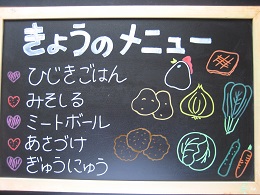 きょうのメニュー
ひじきごはん
みそしる
ミートボール
あさづけ
ぎゅうにゅう